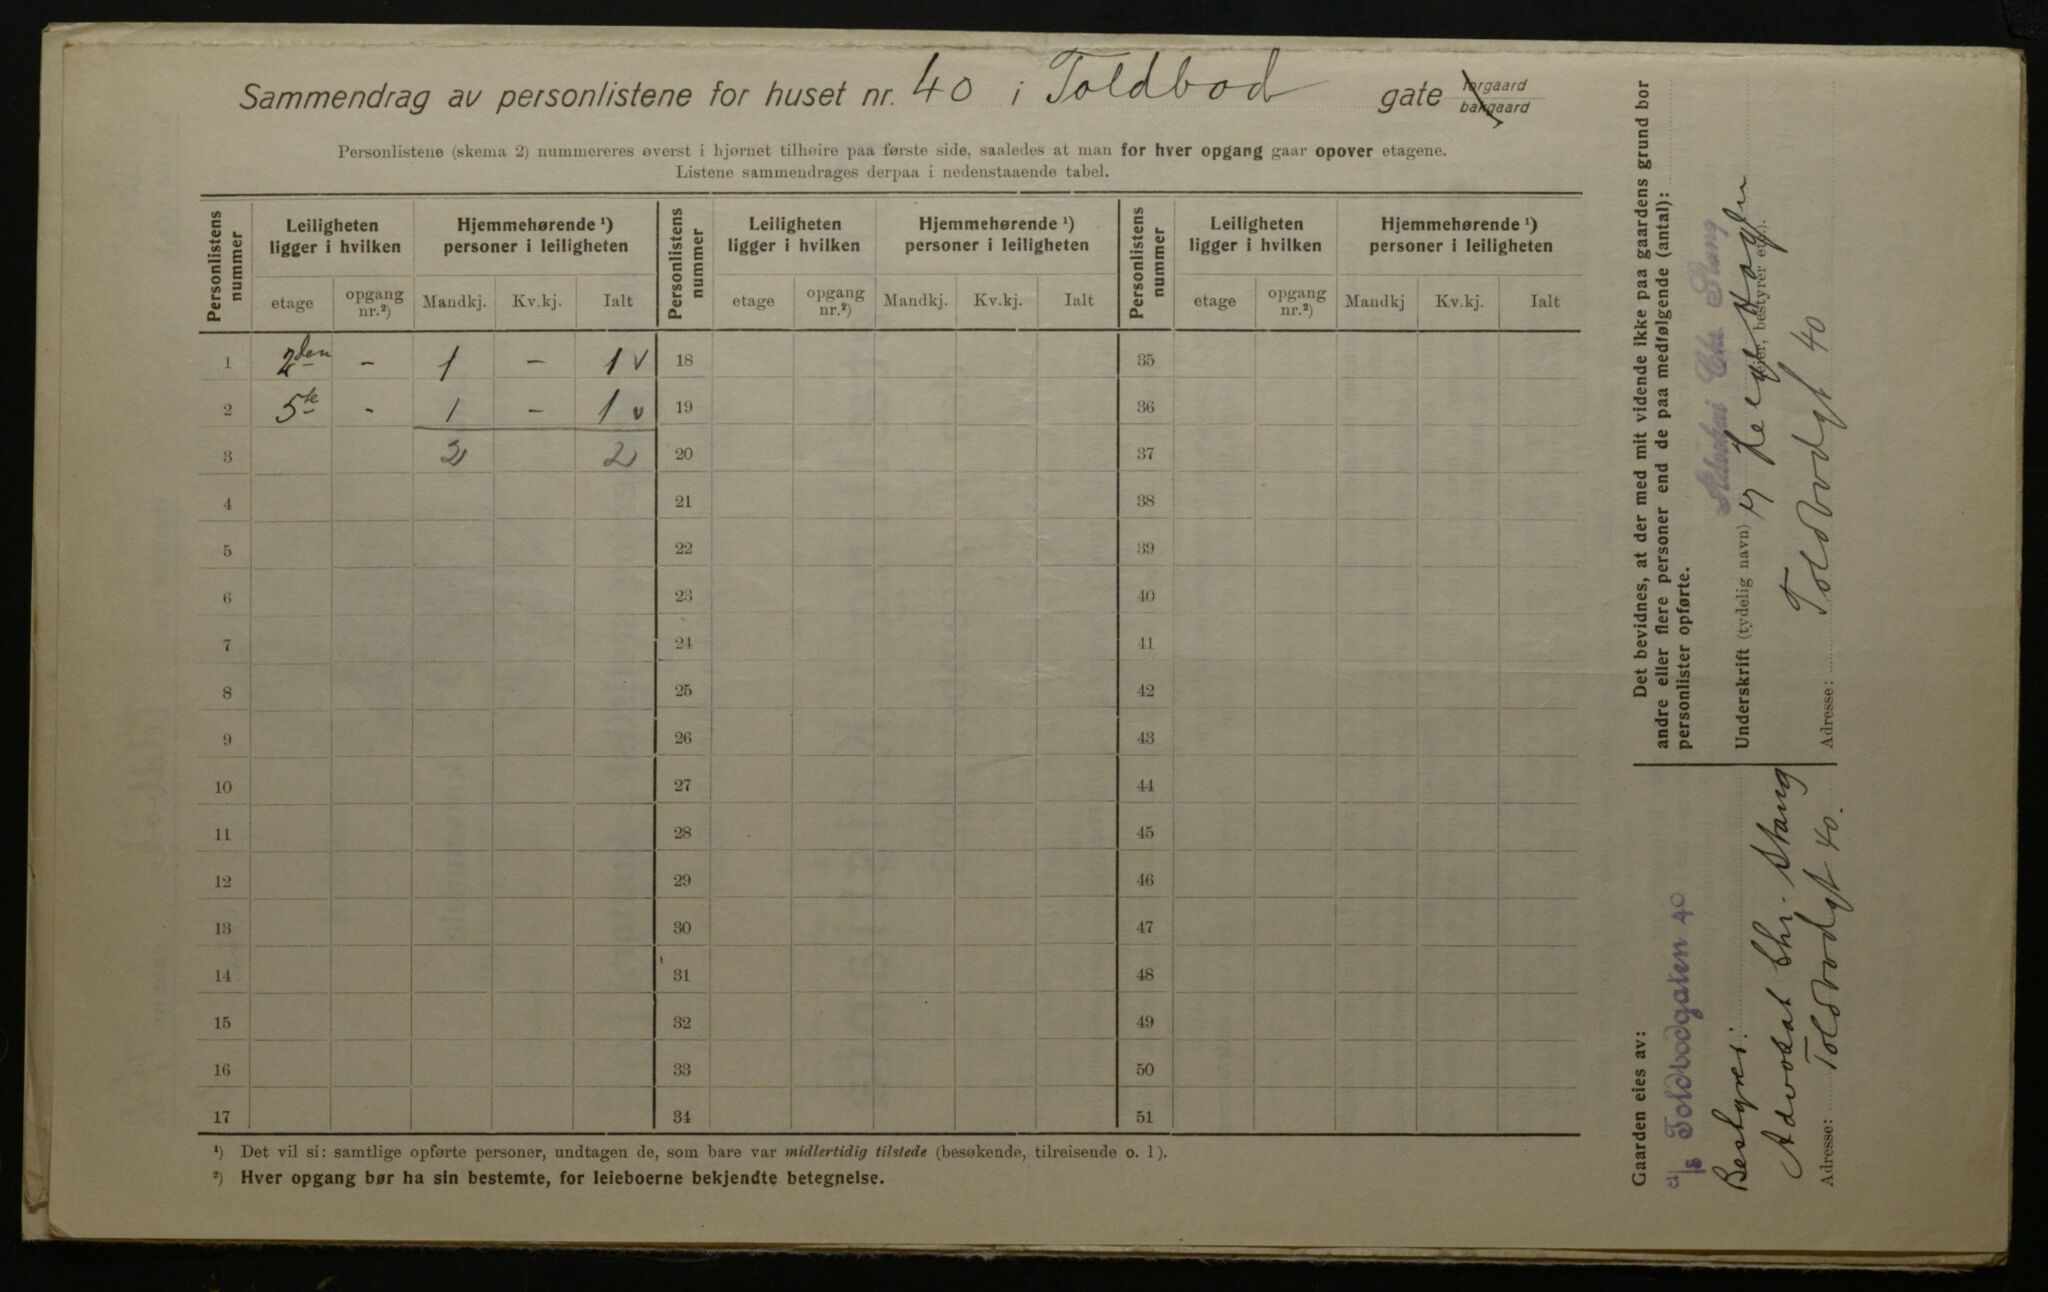 Sammendrag av personlistene for huset nr. 40 i Toldbod gate forgaard bakgaard
Personlistene (skema 2) nummereres øverst i hjørnet tilhøire paa første side, saaledes at man for hver opgang gaar opover etagene.
Listene sammendrages derpaa i nedenstaaende tabel.
Personlistens nummer
Leiligheten ligger i hvilken
Hjemmehørende ¹) personer i leiligheten
Personlistens nummer
Leiligheten ligger i hvilken
Hjemmehørende ¹) personer i leiligheten
Personlistens nummer
Leiligheten ligger i hvilken
Hjemmehørende ¹) personer i leiligheten
etage opgang nr.²) Mandkj. Kv.kj. Ialt etage opgang nr.²) Mandkj. Kv.kj. Ialt etage opgang nr.²) Mandkj Kv.kj. Ialt
1 2den - 1 - 1 v 18 35
2 5te - 1 - 1 v 19 36
3 2 2 20 37
4 21 38
5 22 39
6 23 40
7 24 41
8 25 42
9 26 43
10 27 44
11 28 45
12 29 46
13 30 47
14 31 48
15 32 49
16 33 50
17 34 51
¹) Det vil si: samtlige opførte personer, undtagen de, som bare var midlertidig tilstede (besøkende, tilreisende o. l).
²) Hver opgang bør ha sin bestemte, for leieboerne bekjendte betegnelse.
Det bevidnes, at der med mit vidende ikke paa gaardens grund bor
andre eller flere personer end de paa medfølgende (antal):
personlister opførte.
Chr. Stang
Underskrift (tydelig navn)
(eier, bestyrer etc.).
Toldbodgt 40
Adresse:
Gaarden eies av:
A/S Toldbodgaten 40
Bestyrer:
Advokat Chr. Stang
Toldbodgt 40.
Adresse: